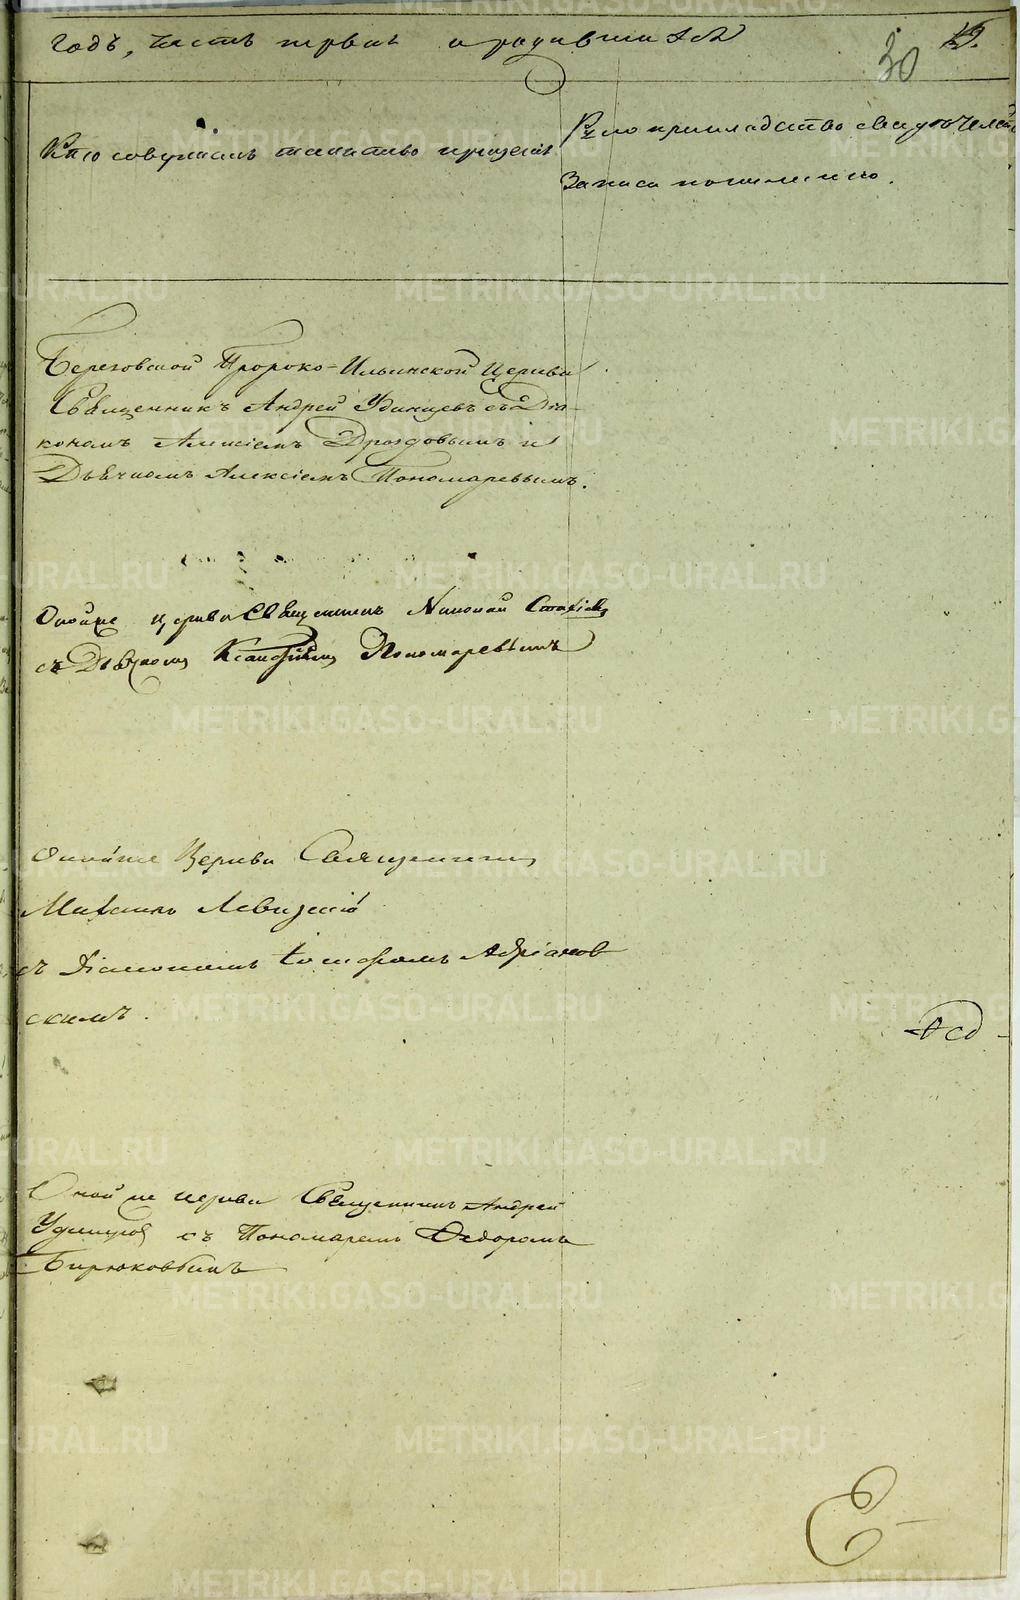 годъ, часть первая о родившихся
30 19.
Кто совершалъ таинство крещенія
Рукоприкладство свидѣтелей
записи по желанію.
Березовской Пророко-Ильинской Церкви
Священникъ Андрей Удинцевъ съ Діа-
кономъ Алексіемъ Дроздовымъ и
Дьячкомъ Алексіемъ Пономаревымъ.
Оной же церкви Священникъ Николай
съ Дьячкомъ Пономаревымъ
Оной же Церкви Священникъ
Михаилъ Левицкій
съ Діакономъ Адріанов
скимъ.
Оной же церкви Священникъ Андрей
Удинцевъ съ Пономаремъ Федоромъ
Бирюковымъ
METRIKI.GASO-URAL.RU